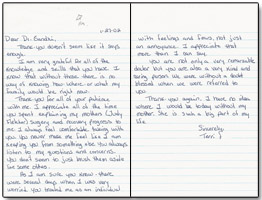 Dear Dr. Gandhi,
Thank you doesn't seem like it says
enough.
I am very grateful for all of the
knowledge and skills that you have. I
know that without these there is no
way of knowing how where or what my
family would be right now.
Thank you for all of your patience
with me. I appreciate all of the time
you spent explaining my mother's (Judy
surgery and recovery progress to
me. I always feel comfortable talking with
you. You never make me feel like I am
keeping you from something else. You always
listen to my questions and concerns.
You don't seem to just brush them aside
like some others.
As I am sure you know there
were several days when I was very
worried. You treated me as an individual
with feelings and fears, not just
an annoyance. I appreciate that
more than I can say.
You are not only a very remarkable
doctor but you are also a very kind and
caring person. We were without a doubt
blessed when we were referred to
you.
Thank you again. I have no idea
where I would be today without my
mother. She is such a big part of my
life.
Sincerely,
Terri